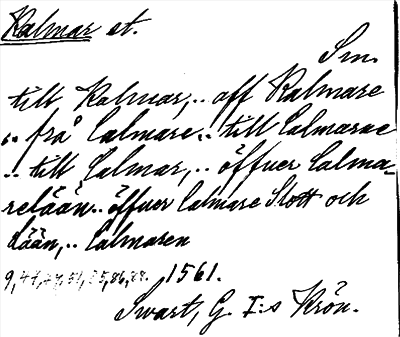 Kalmar st.
Sm.
till Kalmar, .. aff Kalmare
.. frå Calmare .. till Calmarne
.. till Calmar, .. öffuer Calma-
relään .. öffuer Calmare Slott och
Lään, .. Calmaren
1561.
Swart, G. I:s Krön.